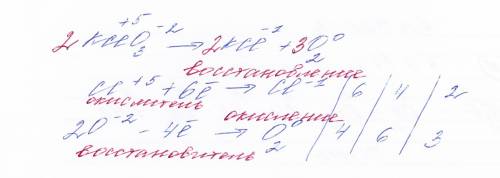 2KClO₃ → 2KCl + 3O₂ +5 -2 -1 0
восстановление
Cl⁺⁵ + 6ē → Cl⁻¹ | 6 | 4 | 2
окислитель окисление
2O⁻² - 4ē → O₂⁰ | 4 | 6 | 3
восстановитель